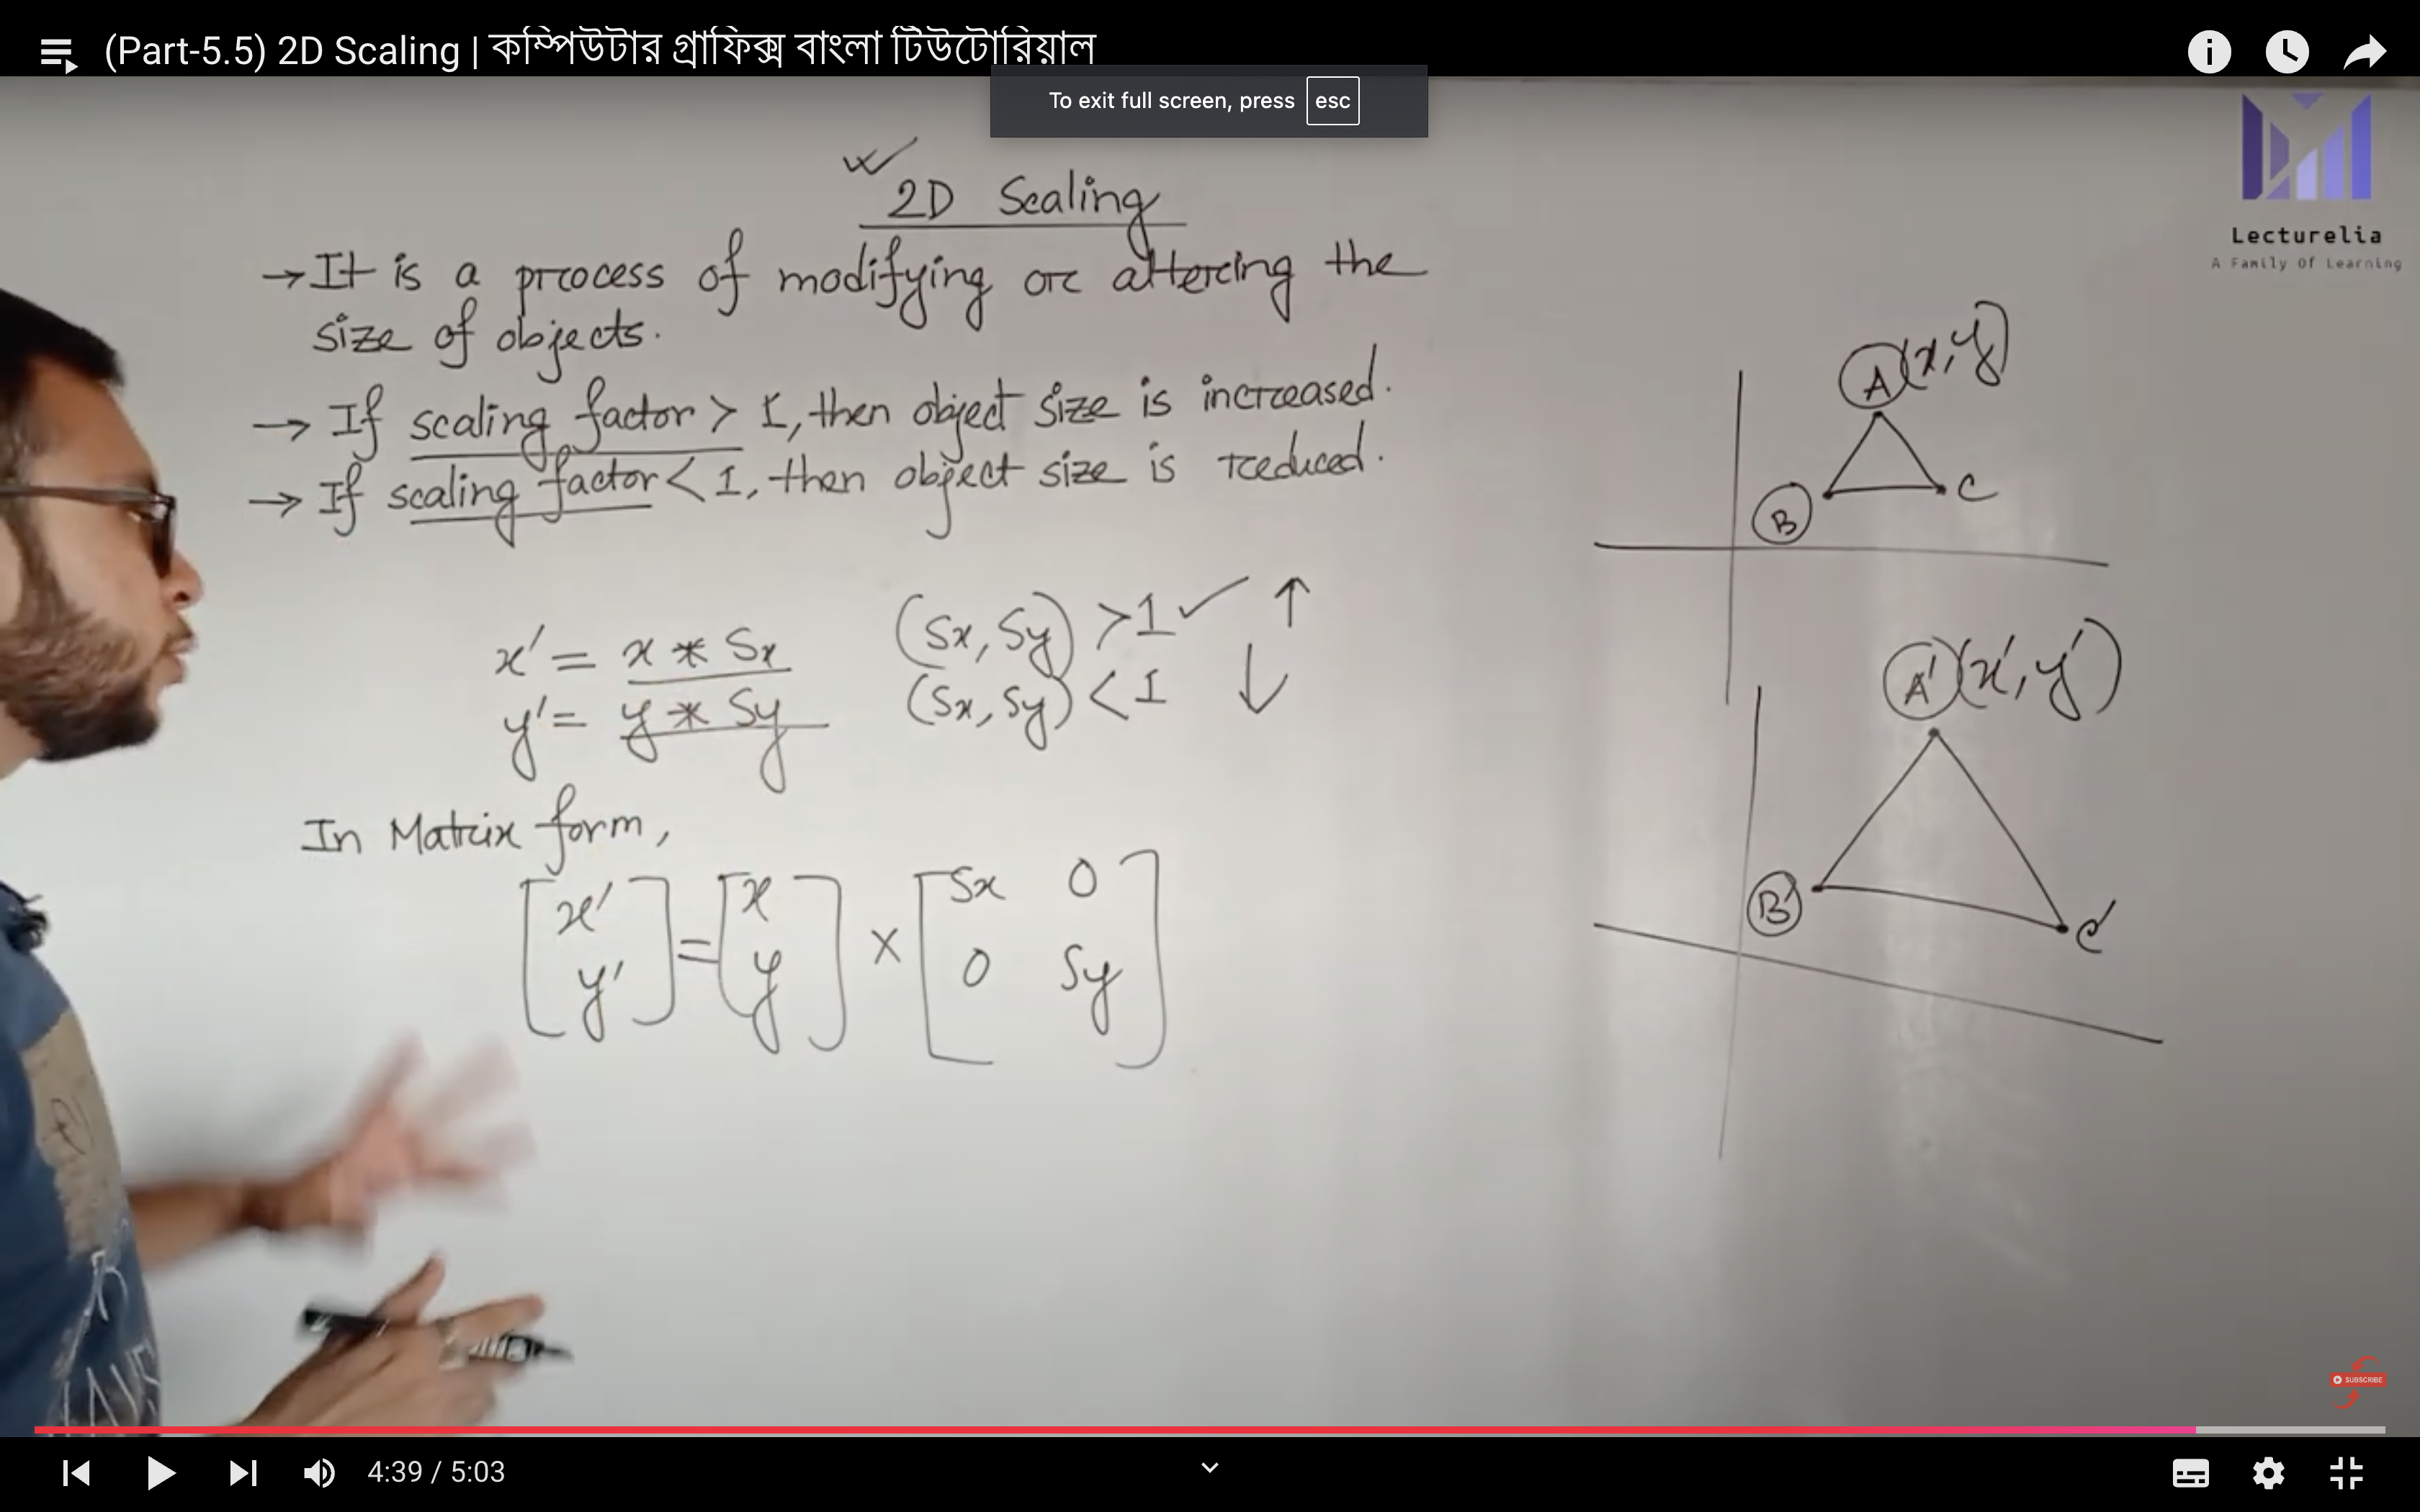 (Part-5.5) 2D Scaling | কম্পিউটার গ্রাফিক্স বাংলা টিউটোরিয়াল
To exit full screen, press esc
Lecturelia
A Family Of Learning
2D Scaling
→ It is a process of modifying or altering the
size of objects.
→ If scaling factor > 1, then object size is increased.
→ If scaling factor < 1, then object size is reduced.
x' = x * Sx (Sx, Sy) > 1 ✓ ↑
y' = y * Sy (Sx, Sy) < 1 ↓
In Matrix form,
[x' = [x × [Sx 0
y'] y] 0 Sy]
A (x, y)
B C
A' (x', y')
B' C'
SUBSCRIBE
4:39 / 5:03